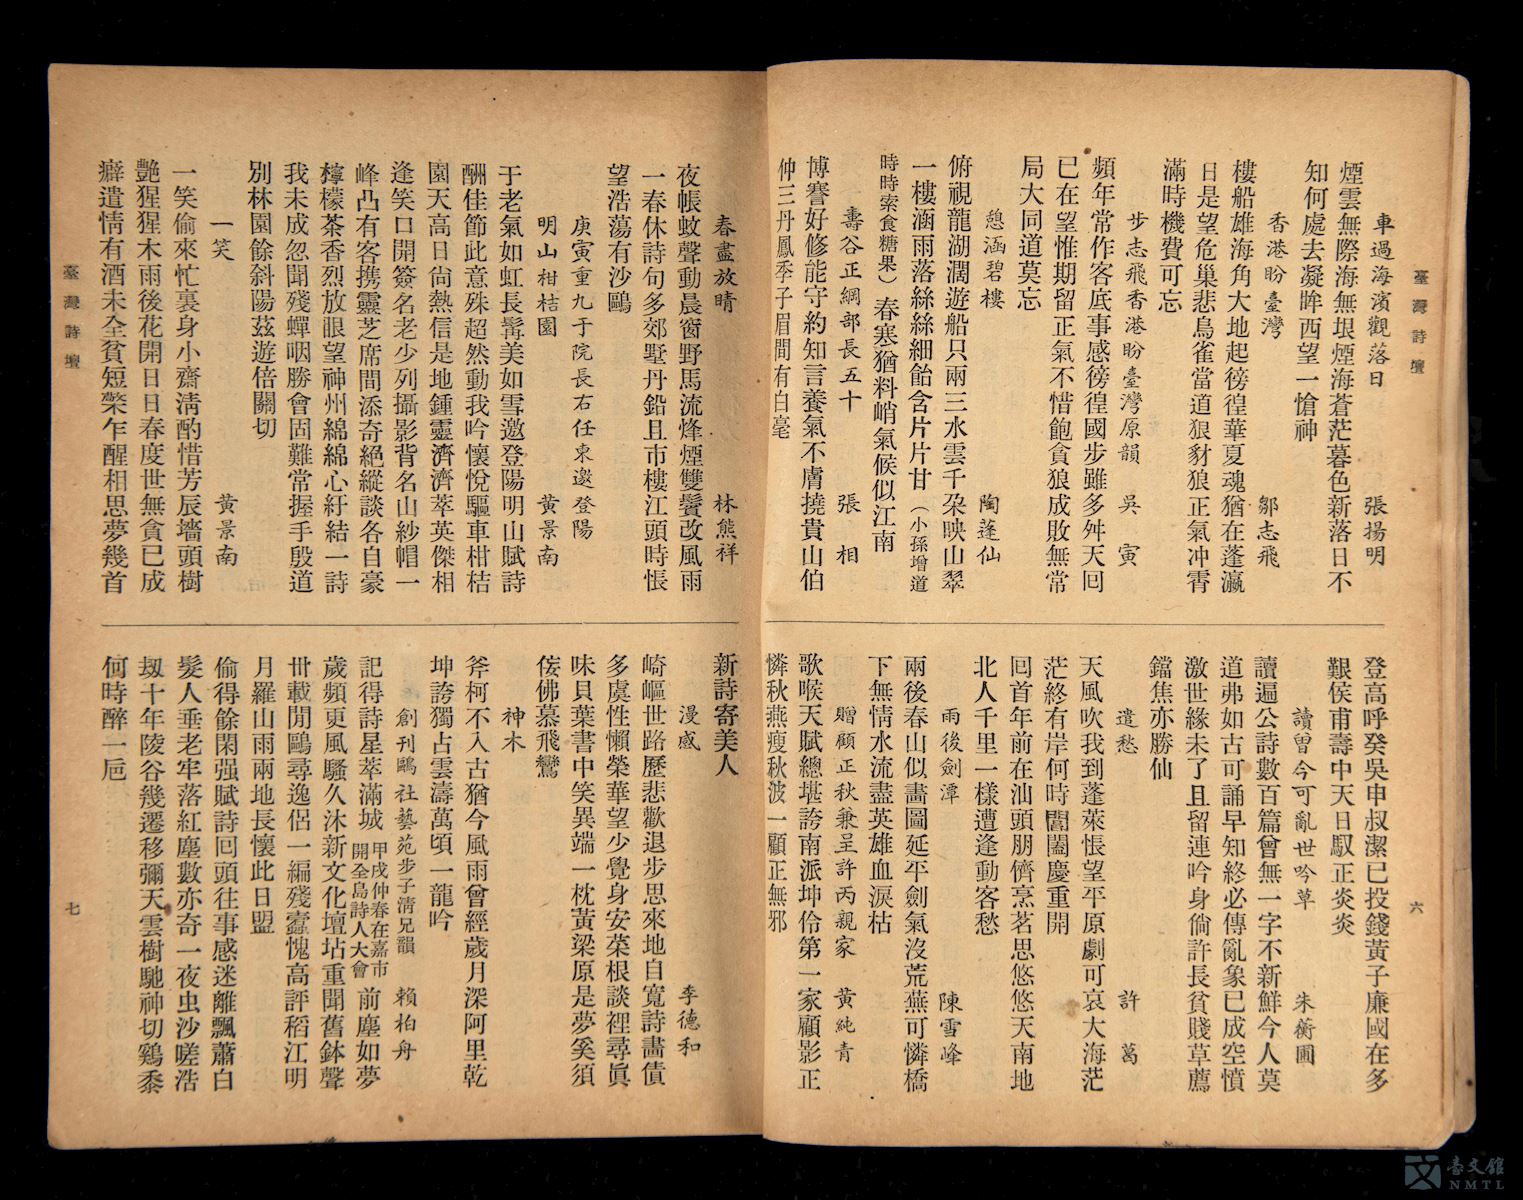 臺灣詩壇
六
車過海濱觀落日 張揚明
煙雲無際海無垠煙海蒼茫暮色新落日不
知何處去凝眸西望一愴神
香港盼臺灣 鄒志飛
樓船雄海角大地起徬徨華夏魂猶在蓬瀛
日是望危巢悲鳥雀當道狠豺狼正氣冲霄
滿時機費可忘
步志飛香港盼臺灣原韻 吳寅
頻年常作客底事感徬徨國步雖多舛天囘
已在望惟期留正氣不惜飽貪狼成敗無常
局大同道莫忘
憩涵碧樓 陶蓬仙
俯視龍湖濶遊船只兩三水雲千朶映山翠
一樓涵雨落絲絲細飴含片片甘（小孫增道
時時索食糖果）春寒猶料峭氣候似江南
壽谷正綱部長五十 張相
博謇好修能守約知言養氣不膚撓貴山伯
仲三丹鳳季子眉間有白毫
登高呼癸吳申叔潔已投錢黃子廉國在多
艱侯甫壽中天日馭正炎炎
讀曾今可亂世吟草 朱蘅圃
讀遍公詩數百篇曾無一字不新鮮今人莫
道弗如古可誦早知終必傳亂象已成空憤
激世緣未了且留連吟身倘許長貧賤草薦
鐺焦亦勝仙
遣愁 許萬
天風吹我到蓬萊悵望平原劇可哀大海茫
茫終有岸何時閶闔慶重開
囘首年前在汕頭朋儕烹茗思悠悠天南地
北人千里一樣遭逢動客愁
雨後劍潭 陳雪峰
兩後春山似畵圖延平劍氣沒荒蕪可憐橋
下無情水流盡英雄血淚枯
贈顧正秋兼呈許丙親家 黃純青
歌喉天賦總堪誇南派坤伶第一家顧影正
憐秋燕瘦秋波一顧正無邪
春盡放晴 林熊祥
夜帳蚊聲動晨窗野馬流烽煙雙鬢改風雨
一春休詩句多郊墅丹鉛且市樓江頭時悵
望浩蕩有沙鷗
庚寅重九于院長右任柬邀登陽
明山柑桔園 黃景南
于老氣如虹長髯美如雪邀登陽明山賦詩
酬佳節此意殊超然動我吟懷悅驅車柑桔
園天高日尙熱信是地鍾靈濟濟萃英傑相
逢笑口開簽名老少列攝影背名山紗帽一
峰凸有客携靈芝席間添奇絕縱談各自豪
檸檬茶香烈放眼望神州綿綿心紆結一詩
我未成忽聞殘蟬咽勝會固難常握手殷道
別林園餘斜陽茲遊倍關切
一笑 黃景南
一笑偷來忙裏身小齋淸酌惜芳辰墻頭樹
艷猩猩木雨後花開日日春度世無貪已成
癖遣情有酒未全貧短檠乍醒相思夢幾首
新詩寄美人
漫感 李德和
崎嶇世路歷悲歡退步思來地自寬詩畵債
多虞性懶榮華望少覺身安菜根談裡尋眞
味貝葉書中笑異端一枕黃梁原是夢奚須
侫佛慕飛鸞
神木
斧柯不入古猶今風雨曾經歲月深阿里乾
坤誇獨占雲濤萬頃一龍吟
創刊鷗社藝苑步子淸兄韻 賴柏舟
記得詩星萃滿城 甲戌仲春在嘉市開全島詩人大會 前塵如夢
歲頻更風騷久沐新文化壇坫重聞舊鉢聲
卅載閒鷗尋逸侶一編殘蠹愧高評稻江明
月羅山雨兩地長懷此日盟
偷得餘閑强賦詩囘頭往事感迷離飄蕭白
髮人垂老牢落紅塵數亦奇一夜虫沙嗟浩
刼十年陵谷幾遷移彌天雲樹馳神切鷄黍
何時醉一巵
臺灣詩壇
七
臺文館
NMTL